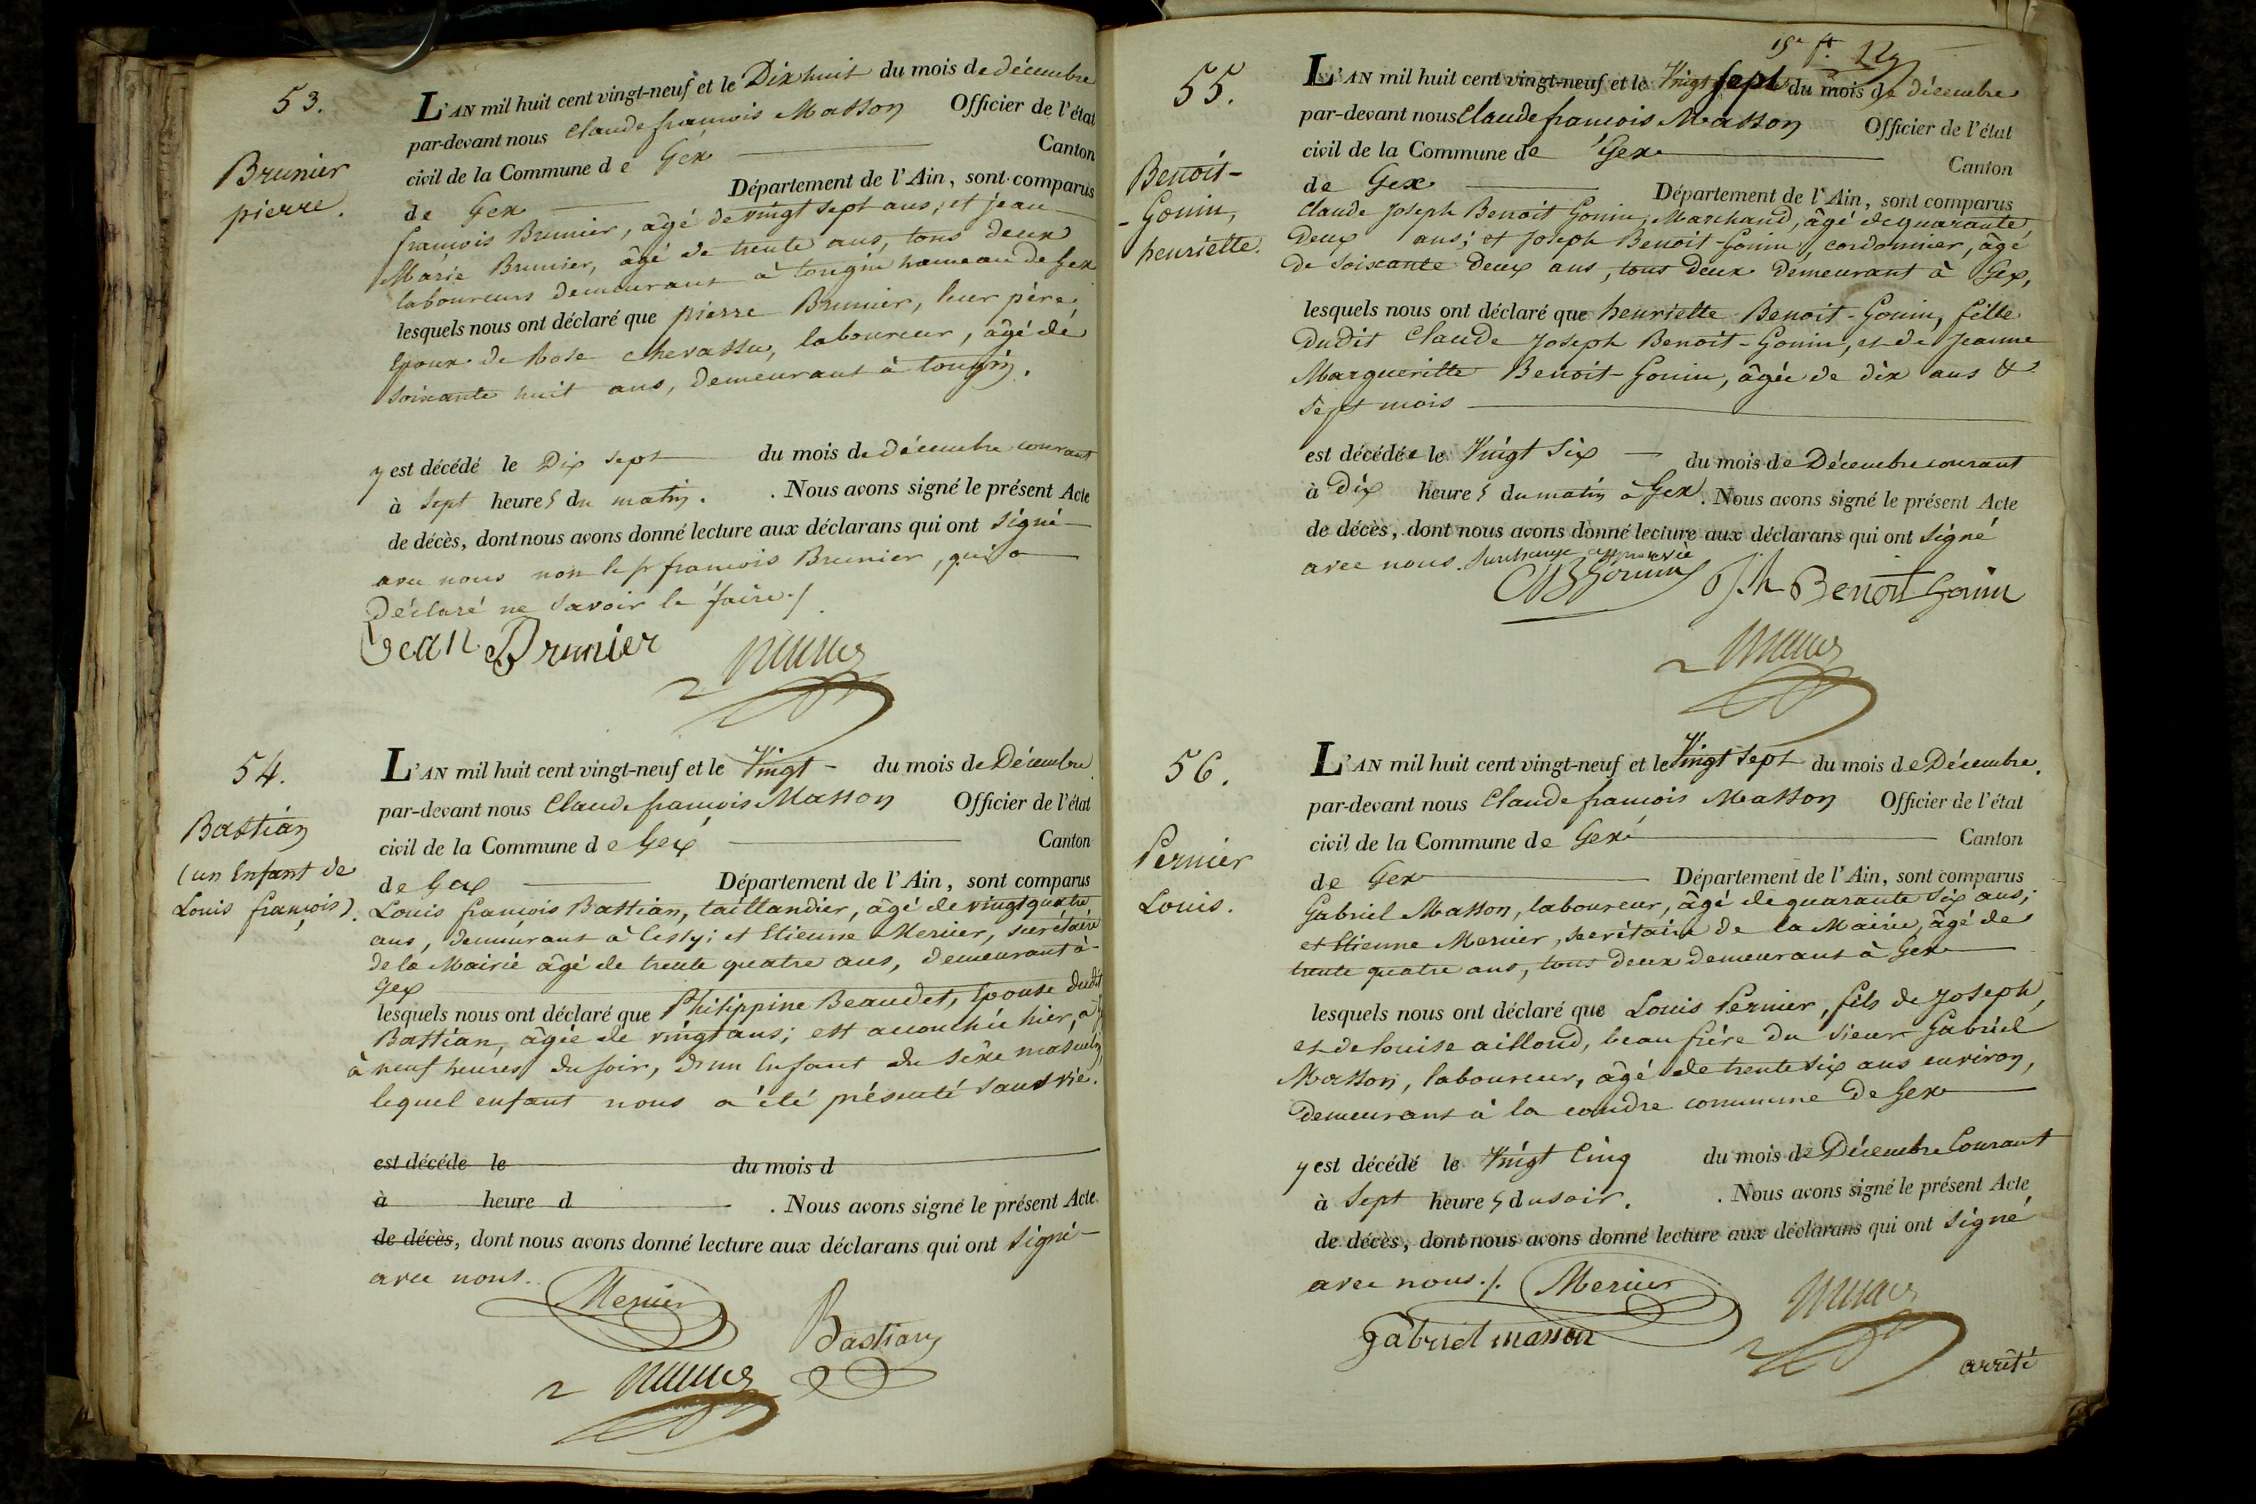 53.
Brunier
pierre.
L'AN mil huit cent vingt-neuf et le Dix huit du mois de décembre
par-devant nous Claude françois Masson Officier de l'état
civil de la Commune de Gex Canton
de Gex Département de l'Ain, sont comparus
françois Brunier, âgé de vingt sept ans; et jean
Marie Brunier, âgé de trente ans, tous deux
laboureurs demeurant à tougin hameau de Gex
lesquels nous ont déclaré que pierre Brunier, leur père,
Epoux de Rose Chevassu, laboureur, âgé de
soixante huit ans, demeurant à tougin.
y est décédé le Dix sept du mois de décembre courant
à sept heures du matin. . Nous avons signé le présent Acte
de décès, dont nous avons donné lecture aux déclarans qui ont signé
avec nous non le sr françois Brunier, qui a
Déclaré ne savoir le faire./.
Jean Brunier
54.
Bastian
(un Enfant de
Louis françois).
L'AN mil huit cent vingt-neuf et le Vingt du mois de Décembre
par-devant nous Claude françois Masson Officier de l'état
civil de la Commune de Gex Canton
de Gex Département de l'Ain, sont comparus
Louis françois Bastian, taillandier, âgé de vingt quatre
ans, demeurant à Cessy; et Etienne Mercier, secrétaire
de la Mairie âgé de trente quatre ans, demeurant à
Gex
lesquels nous ont déclaré que Philippine Beaudet, Epouse dudit
Bastian, âgée de vingt ans; est accouchée hier, à
à neuf heures du soir, d'un Enfant du sexe masculin,
lequel enfant nous a été présenté sans vie.
est décédé le du mois d
à heure d . Nous avons signé le présent Acte
de décès, dont nous avons donné lecture aux déclarans qui ont signé
avec nous.
Mercier
Bastian
55.
Benoit-
-Gonin,
henriette.
L'AN mil huit cent vingt-neuf et le Vingt sept du mois de décembre
par-devant nous Claude francois Masson Officier de l'état
civil de la Commune de Gex Canton
de Gex Département de l'Ain, sont comparus
Claude Joseph Benoit Gonin, Marchand, âgé de quarante
Deux ans; et Joseph Benoit-Gonin, cordonnier, âgé
de soixante Deux ans, tous Deux Demeurant à Gex,
lesquels nous ont déclaré que henriette Benoit-Gonin, fille
Dudit Claude Joseph Benoit-Gonin, et de Jeanne
Margueritte Benoit-Gonin, âgée de dix ans &
sept mois
est décédée le Vingt six du mois de Décembre courant
à Dix heures du matin à Gex. Nous avons signé le présent Acte
de décès, dont nous avons donné lecture aux déclarans qui ont signé
avec nous. Surcharge approuvée
Jph Benoit Gonin
56.
Pernier
Louis.
L'AN mil huit cent vingt-neuf et le Vingt sept du mois de Décembre.
par-devant nous Claude francois Masson Officier de l'état
civil de la Commune de Gex Canton
de Gex Département de l'Ain, sont comparus
Gabriel Masson, laboureur, âgé de quarante six ans;
et Etienne Mercier, secrétaire de la Mairie, âgé de
trente quatre ans, tous deux demeurant à Gex
lesquels nous ont déclaré que Louis Pernier, fils de Joseph,
et de Louise ailloud, beau frère du sieur Gabriel
Masson, laboureur, âgé de trente six ans environ,
Demeurant à la coudre commune de Gex
y est décédé le Vingt Cinq du mois de Décembre Courant
à Sept heures du soir. . Nous avons signé le présent Acte
de décès, dont nous avons donné lecture aux déclarans qui ont signé
avec nous./. Mercier
gabriel masson
arrêté